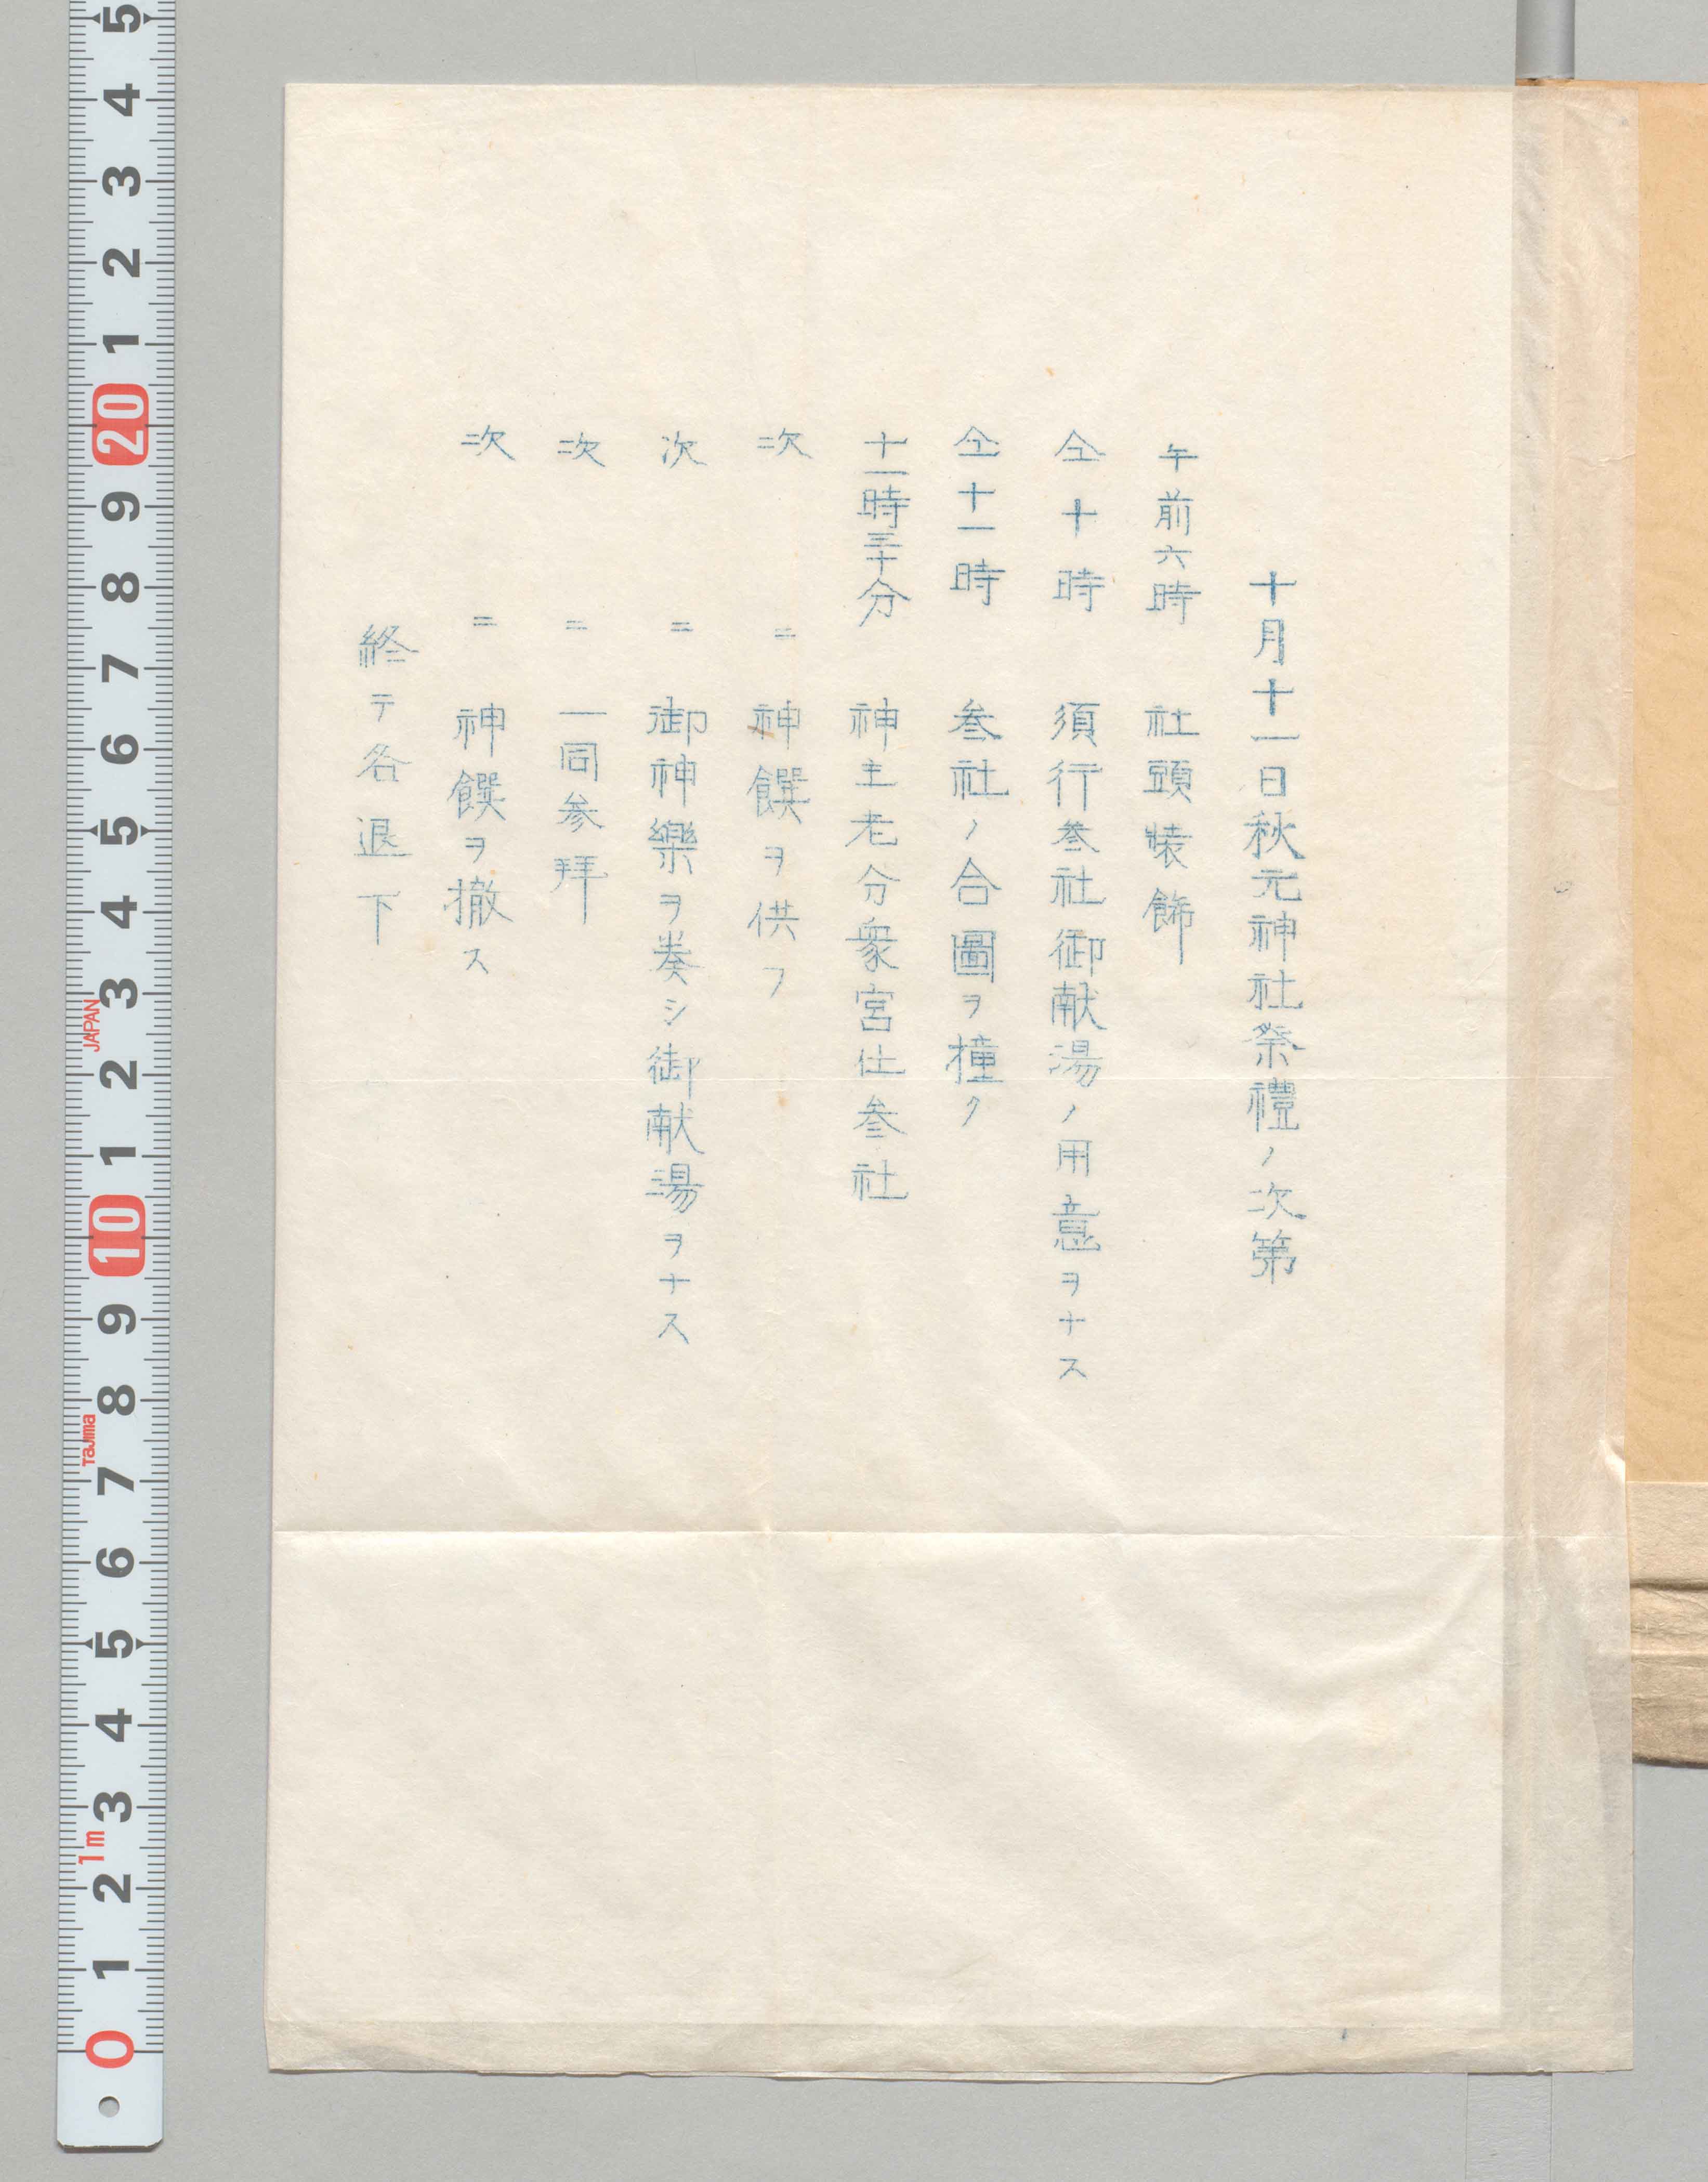 十月十一日秋元神社祭禮ノ次第
午前六時 社頭装飾
仝十時 須行叄社御献湯ノ用意ヲナス
仝十一時 叄社ノ合圖ヲ撞ク
十一時三十分 神主老分衆宮仕叄社
次ニ 神饌ヲ供フ
次ニ 御神樂ヲ奏シ御献湯ヲナス
次ニ 一同参拜
次ニ 神饌ヲ撤ス
終テ各退下
5 4 3 2 1 20 9 8 7 6 5 4 3 2 1 10 9 8 7 6 5 4 3 2 1 0
JAPAN
Tajima
1m